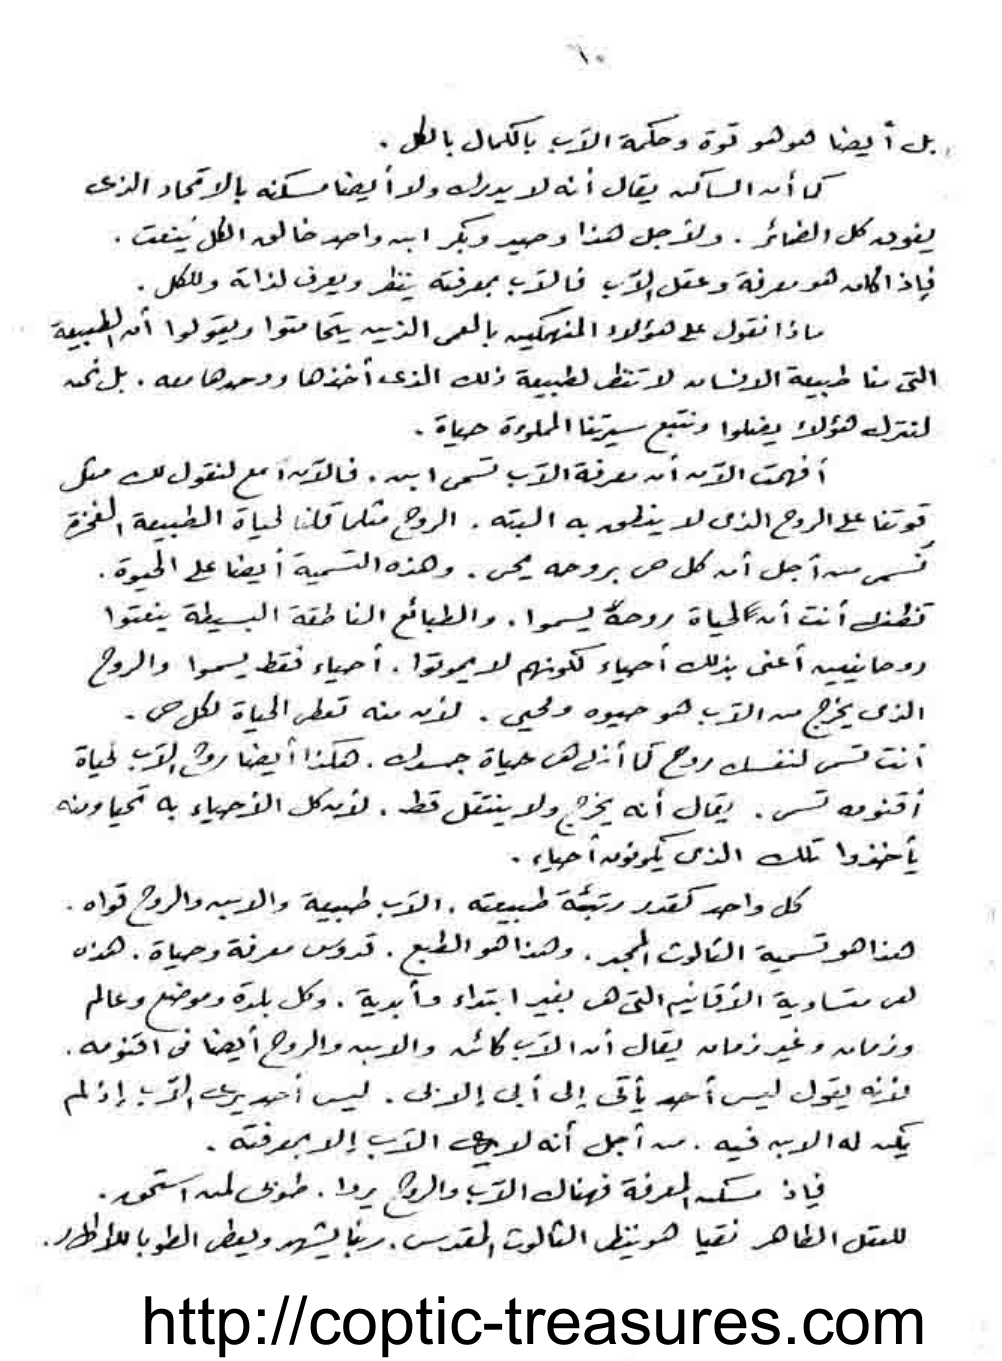 ٦٠
بل أيضا هو هو قوة وحكمة الآب بالكمال بالكل .
كما أن الساكن يقال أنه لا يدرك ولا أيضا مسكنه بالاتحاد الذى
يفوق كل الضمائر . ولأجل هذا وحيد وبكر ابن واحد خالق الكل ينعت .
فإذا كان هو معرفة وعقل الآب فالآب بمعرفته ينظر ويعرف لذاته وللكل .
ماذا نقول على هؤلاء المنهمكين بالعمى الذين يتحامقوا ويقولوا أن الطبيعة
التى منا طبيعة الانسان لا تنظر لطبيعة ذلك الذى أخذها ووحدها معه . بل نحن
لنترك هؤلاء يضلوا ونتبع سيرتنا المملوءة حياة .
أفهمت الآن أن معرفة الآب تسمى ابن . فالآن اسمع لنقول لك مثل
قوتنا على الروح الذى لا ينطق به البته . الروح مثلما قلنا لحياة الطبيعة المفخرة
تسمى من أجل أن كل حى بروحه يحى . وهذه التسمية أيضا على الحيوة .
تظنك أنت أن الحياة روحا يسموا . والطبائع الناطقة البسيطة ينعتوا
روحانيين أعنى بذلك أحياء لكونهم لا يموتوا . أحياء فقط يسموا والروح
الذى يخرج من الآب هو حيوه ومحيى . لأن منه تعطى الحياة لكل حى .
أنت تسمى لنفسك روح كما أنها هى حياة جسدك . هكذا أيضا روح الآب لحياة
أقنومه تسمى . يقال أنه يخرج ولا ينتقل قط . لأن كل الأحياء به تحيا ومنه
يأخذوا تلك الذى يكونون أحياء .
كل واحد كقدر رتبة طبيعته . الآب طبيعة والابن والروح قواه .
هذا هو تسمية الثالوث الممجد . وهذا هو الطبع . قدوس معرفة وحياة . هذه
هى متساوية الأقانيم التى هى بغير ابتداء وأبدية . وكل بلدة وموضع وعالم
وزمان وغير زمان يقال أن الآب كائن والابن والروح أيضا فى اقنومه .
لأنه يقول ليس أحد يأتى إلى أبى إلا بى . ليس أحد يرى الآب إذ لم
يكن له الابن فيه . من أجل أنه لا يرى الآب إلا بمعرفته .
فإذ مسكن المعرفة فهناك الآب والروح يروا . طوبى لمن استحق .
للعقل الطاهر نقيا هو ينظر الثالوث المقدس . ربنا يشهد ويعطى الطوبا للأطهار .
http://coptic-treasures.com